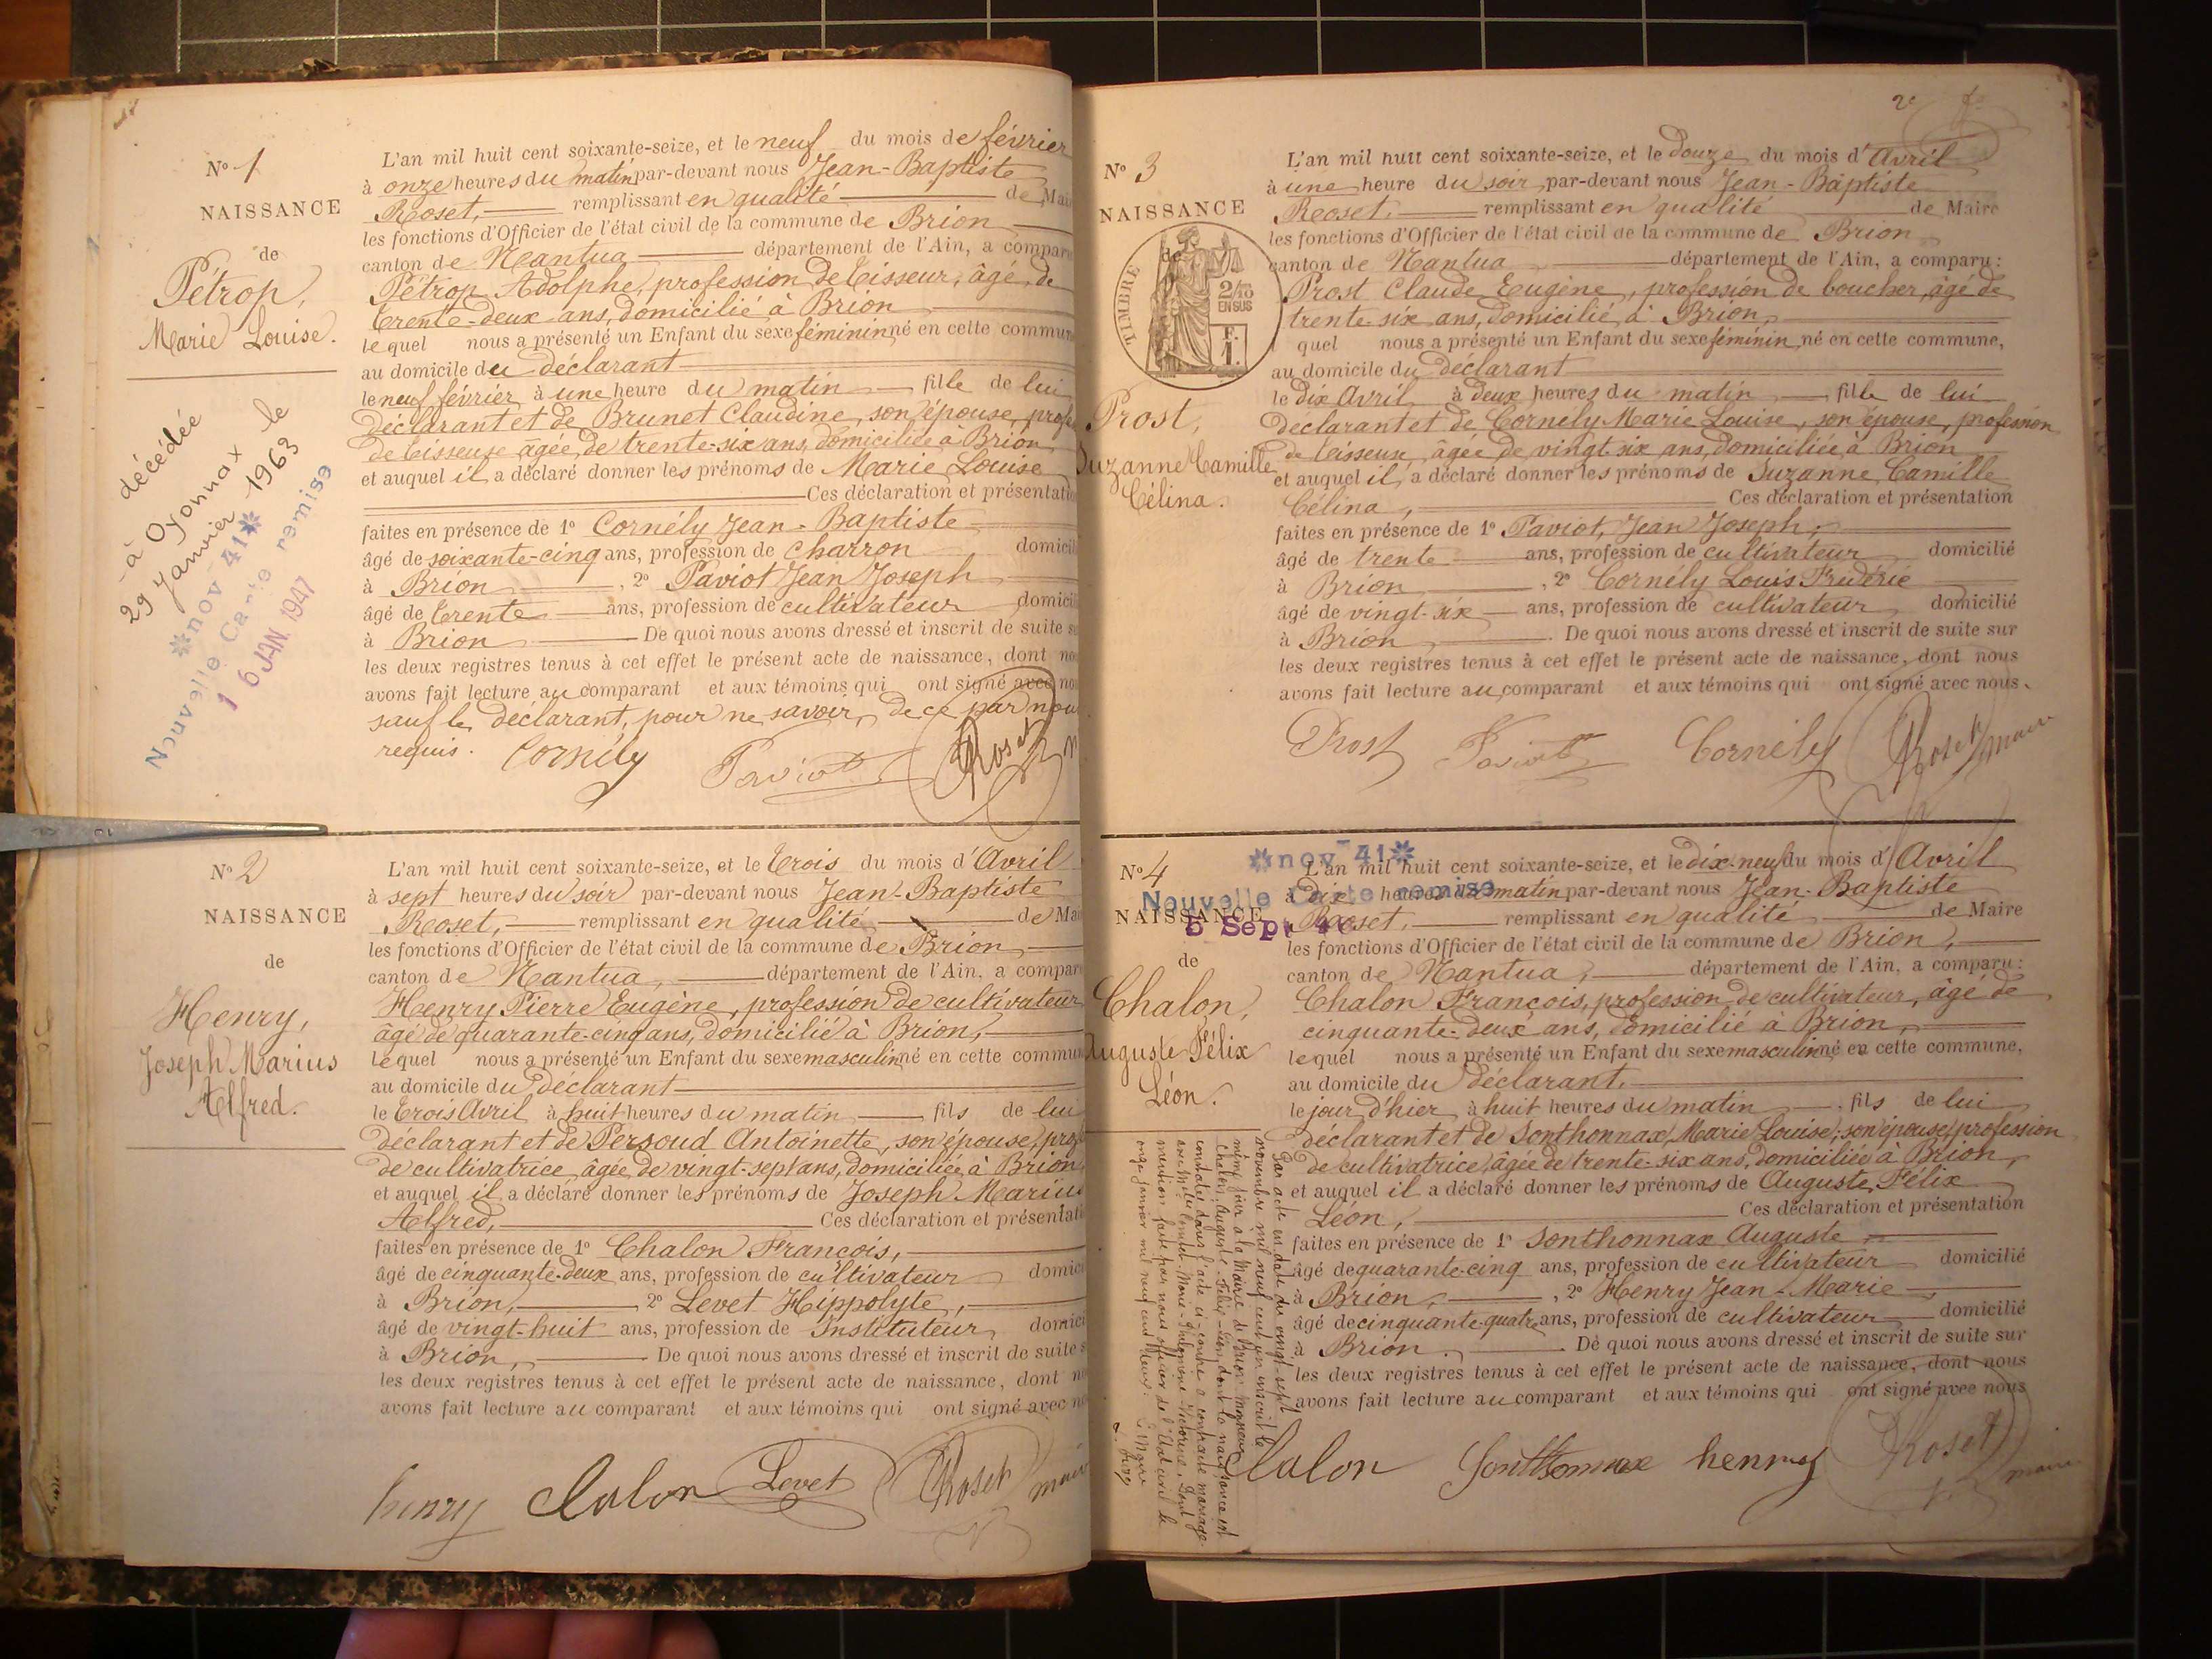 No 1
NAISSANCE
de
Pétrop,
Marie Louise.
décédée
à Oyonnax le
29 Janvier 1963
*nov 41*
Nouvelle Carte remise
16 JAN. 1947
L'an mil huit cent soixante-seize, et le neuf du mois de février
à onze heures du matin par-devant nous Jean-Baptiste
Roset, remplissant en qualité de Mai
les fonctions d'Officier de l'état civil de la commune de Brion
canton de Nantua département de l'Ain, a compar
Pétrop Adolphe, profession de tisseur, âgé de
trente-deux ans, domicilié à Brion
lequel nous a présenté un Enfant du sexe féminin né en cette commun
au domicile du déclarant
le neuf février à une heure du matin fille de lui
déclarant et de Brunet Claudine, son épouse, profe
de tisseuse âgée de trente-six ans, domiciliée à Brion
et auquel il a déclaré donner les prénoms de Marie Louise
Ces déclaration et présentatio
faites en présence de 1o Cornély Jean-Baptiste
âgé de soixante-cinq ans, profession de charron domicil
à Brion, 2o Paviot Jean Joseph
âgé de trente ans, profession de cultivateur domicil
à Brion De quoi nous avons dressé et inscrit de suite s
les deux registres tenus à cet effet le présent acte de naissance, dont no
avons fait lecture au comparant et aux témoins qui ont signé avec no
sauf le déclarant, pour ne savoir, de ce par nou
requis. Cornély Paviot Roset m
No 2
NAISSANCE
de
Henry,
Joseph Marius
Alfred.
L'an mil huit cent soixante-seize, et le trois du mois d'Avril
à sept heures du soir par-devant nous Jean-Baptiste
Roset, remplissant en qualité de Mai
les fonctions d'Officier de l'état civil de la commune de Brion
canton de Nantua, département de l'Ain, a compar
Henry Pierre Eugène, profession de cultivateur
âgé de quarante-cinq ans, domicilié à Brion,
lequel nous a présenté un Enfant du sexe masculin né en cette commun
au domicile du déclarant
le trois Avril à huit heures du matin fils de lui
déclarant et de Persoud Antoinette, son épouse, profe
de cultivatrice, âgée de vingt-sept ans, domiciliée à Brion,
et auquel il a déclaré donner les prénoms de Joseph Marius
Alfred, Ces déclaration et présentati
faites en présence de 1o Chalon François,
âgé de cinquante-deux ans, profession de cultivateur domici
à Brion, 2o Levet Hippolyte,
âgé de vingt-huit ans, profession de Instituteur domici
à Brion, De quoi nous avons dressé et inscrit de suite s
les deux registres tenus à cet effet le présent acte de naissance, dont n
avons fait lecture au comparant et aux témoins qui ont signé avec no
henry Chalon Levet Roset maire
2e
No 3
NAISSANCE
de
TIMBRE
2/10
EN SUS
F.
1.
Prost,
Suzanne Camille
Célina.
L'an mil huit cent soixante-seize, et le douze du mois d'Avril
à une heure du soir par-devant nous Jean-Baptiste
Roset, remplissant en qualité de Maire
les fonctions d'Officier de l'état civil de la commune de Brion
canton de Nantua département de l'Ain, a comparu:
Prost Claude Eugène, profession de boucher, âgé de
trente-six ans, domicilié à Brion,
quel nous a présenté un Enfant du sexe féminin, né en cette commune,
au domicile du déclarant
le dix Avril à deux heures du matin fille de lui
déclarant et de Cornély Marie Louise, son épouse, profession
de tisseuse, âgée de vingt-six ans, domiciliée à Brion
et auquel il a déclaré donner les prénoms de Suzanne Camille
Célina, Ces déclaration et présentation
faites en présence de 1o Paviot, Jean Joseph,
âgé de trente ans, profession de cultivateur domicilié
à Brion, 2o Cornély Louis Frédéric
âgé de vingt-six ans, profession de cultivateur, domicilié
à Brion De quoi nous avons dressé et inscrit de suite sur
les deux registres tenus à cet effet le présent acte de naissance, dont nous
avons fait lecture au comparant et aux témoins qui ont signé avec nous.
Prost Paviot Cornély Roset maire
No 4
NAISSANCE
de
Chalon,
Auguste Félix
Léon.
*nov 41*
Nouvelle Carte remise
5 Sept 4
L'an mil huit cent soixante-seize, et le dix-neuf du mois d'Avril
à dix heures du matin par-devant nous Jean-Baptiste
Roset, remplissant en qualité de Maire
les fonctions d'Officier de l'état civil de la commune de Brion,
canton de Nantua, département de l'Ain, a comparu:
Chalon François, profession de cultivateur, âgé de
cinquante-deux ans, domicilié à Brion,
lequel nous a présenté un Enfant du sexe masculin né en cette commune,
au domicile du déclarant,
le jour d'hier à huit heures du matin fils de lui
déclarant et de Sonthonnax, Marie Louise, son épouse, profession
de cultivatrice, âgée de trente-six ans, domiciliée à Brion,
et auquel il a déclaré donner les prénoms de Auguste Félix
Léon, Ces déclaration et présentation
faites en présence de 1o Sonthonnax Auguste
âgé de quarante-cinq ans, profession de cultivateur domicilié
à Brion, 2o Henry Jean-Marie
âgé de cinquante-quatre ans, profession de cultivateur domicilié
à Brion. De quoi nous avons dressé et inscrit de suite sur
les deux registres tenus à cet effet le présent acte de naissance, dont nous
avons fait lecture au comparant et aux témoins qui ont signé avec nous
Chalon Sonthonnax henry Roset maire
Par acte en date du vingt-sept
novembre mil neuf cent un inscrit le
même jour à la Mairie de Brion Monsieur
Chalon, Auguste-Félix-Léon, dont la naissance est
constatée dans l'acte ci-contre a contracté mariage
avec Marie Philomène Victorine. Dont
mention faite par nous officier de l'état civil le
onze janvier mil neuf cent deux.
Le Maire